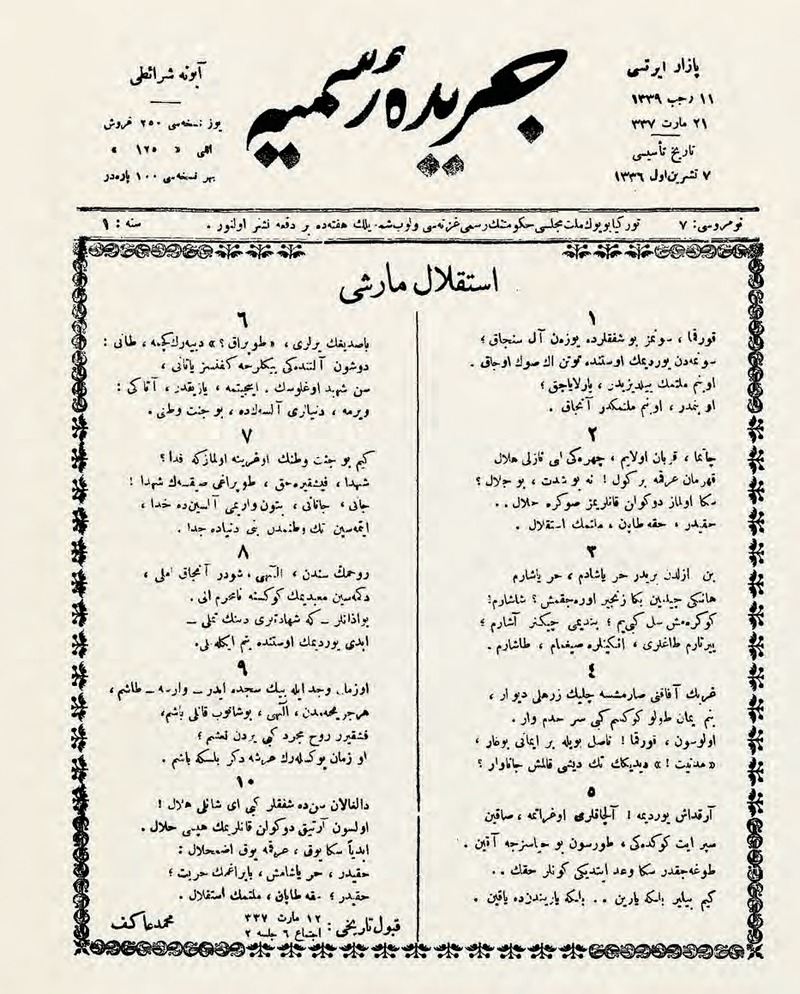 پازار ايرتسى
١١ رجب ١٣٣٩
٢١ مارت ٣٣٧
تاريخ تأسيسى
٧ تشرين اول ١٣٣٦
جريدهٔ رسميه
آبونه شرائطى
يوز نسخه‌سى ٢٥٠ غروش
اللى » ١٢٥ »
بهر نسخه‌سى ١٠٠ پاره‌در
نومروسى: ٧
توركيا بويوك ملت مجلسى حكومتنك رسمى غزته‌سى اولوب شمديلك هفته‌ده بر دفعه نشر اولنور .
سنه : ١
استقلال مارشى
١
قورقما ، سونمز بو شفقلرده يوزن آل سنجاق ؛
سونمه‌دن يورديمك اوستنده توتن اك صوك اوجاق .
او بنم ملتمك ييلديزيدر ، پارلاياجق ؛
او بنمدر ، او بنم ملتمكدر آنجاق .
٢
چاتما ، قربان اولايم ، چهره‌كى اى نازلى هلال
قهرمان عرقمه بر كول ! نه بو شدت ، بو جلال ؟
سكا اولماز دوكولن قانلريمز صوكره حلال ..
حقيدر ، حقه طاپان ، ملتمك استقلال .
٣
بن ازلدن بريدر حر ياشادم ، حر ياشارم
هانكى چيلغين بكا زنجير اوره‌جقمش ؟ شاشارم!
كوكره‌مش سل كبى‌يم ؛ بنديمى چيكنر آشارم ؛
ييرتارم طاغلرى ، انكينلره صيغمام ، طاشارم .
٤
غربك آفاقنى صارمشسه چليك زرهلى ديوار ،
بنم ايمان طولو كوكسم كبى سر حدم وار .
اولوسون ، قورقما ! ناصل بويله بر ايمانى بوغار ،
« مدنيت ! » ديديكك تك ديشى قالمش جاناوار ؟
٥
آرقداش يورديمه ! آلچاقلرى اوغراتمه ، صاقين
سپر ايت كوكده‌كى ، طورسون بو حياسزجه آقين .
طوغه‌جقدر سكا وعد ايتديكى كونلر حقك ..
كيم بيلير بلكه يارين .. بلكه ياريندن‌ده ياقين .
٦
باصديغك يرلرى ، « طوپراق ؟ » دييه‌رك كچمه ، طانى :
دوشون آلتنده‌كى بيكلرجه كفنسز ياتانى ،
سن شهيد اوغلوسك . اينجيتمه ، يازيقدر ، آتاكى :
ويرمه ، دنيالرى آلسه‌ك‌ده ، بو جنت وطنى .
٧
كيم بو جنت وطنك اوغرينه اولمازكه فدا ؟
شهدا ، فيشقيره‌جق ، طوپراغى صيقسه‌ك شهدا !
جانى ، جانانى ، بتون واريمى آلسين‌ده خدا ،
ايتمه‌سين تك وطنمدن بنى دنياده جدا .
٨
روحمك سندن ، الٓهى ، شودر آنجاق املى ،
دكمه‌سين معبديمك كوكسنه نامحرم الى .
بو اذانلر ـ كه شهادتلرى دينك تملى ـ
ابدى يورديمك اوستنده بنم ايكله‌لى.
٩
اوزمان وجد ايله بيك سجده ايدر ـ وارسه ـ طاشم ،
هر جريحه‌مدن ، الٓهى ، بوشانوب قانلى ياشم،
فيشقيرر روح مجرد كبى يردن نعشم ؛
او زمان يوكسه‌له‌رك عرشه دكر بلكه باشم .
١٠
دالغالان سن‌ده شفقلر كبى اى شانلى هلال !
اولسون آرتيق دوكولن قانلريمك هپسى حلال .
ابدياً سكا يوق ، عرقمه يوق اضمحلال :
حقيدر ، حر ياشامش ، بايراغمك حريت ؛
حقيدر ؛ حقه طاپان ، ملتمك استقلال .
قبول تاريخى : ١٢ مارت ٣٣٧
اجتماع ٦ جلسه ٢
محمد عاكف